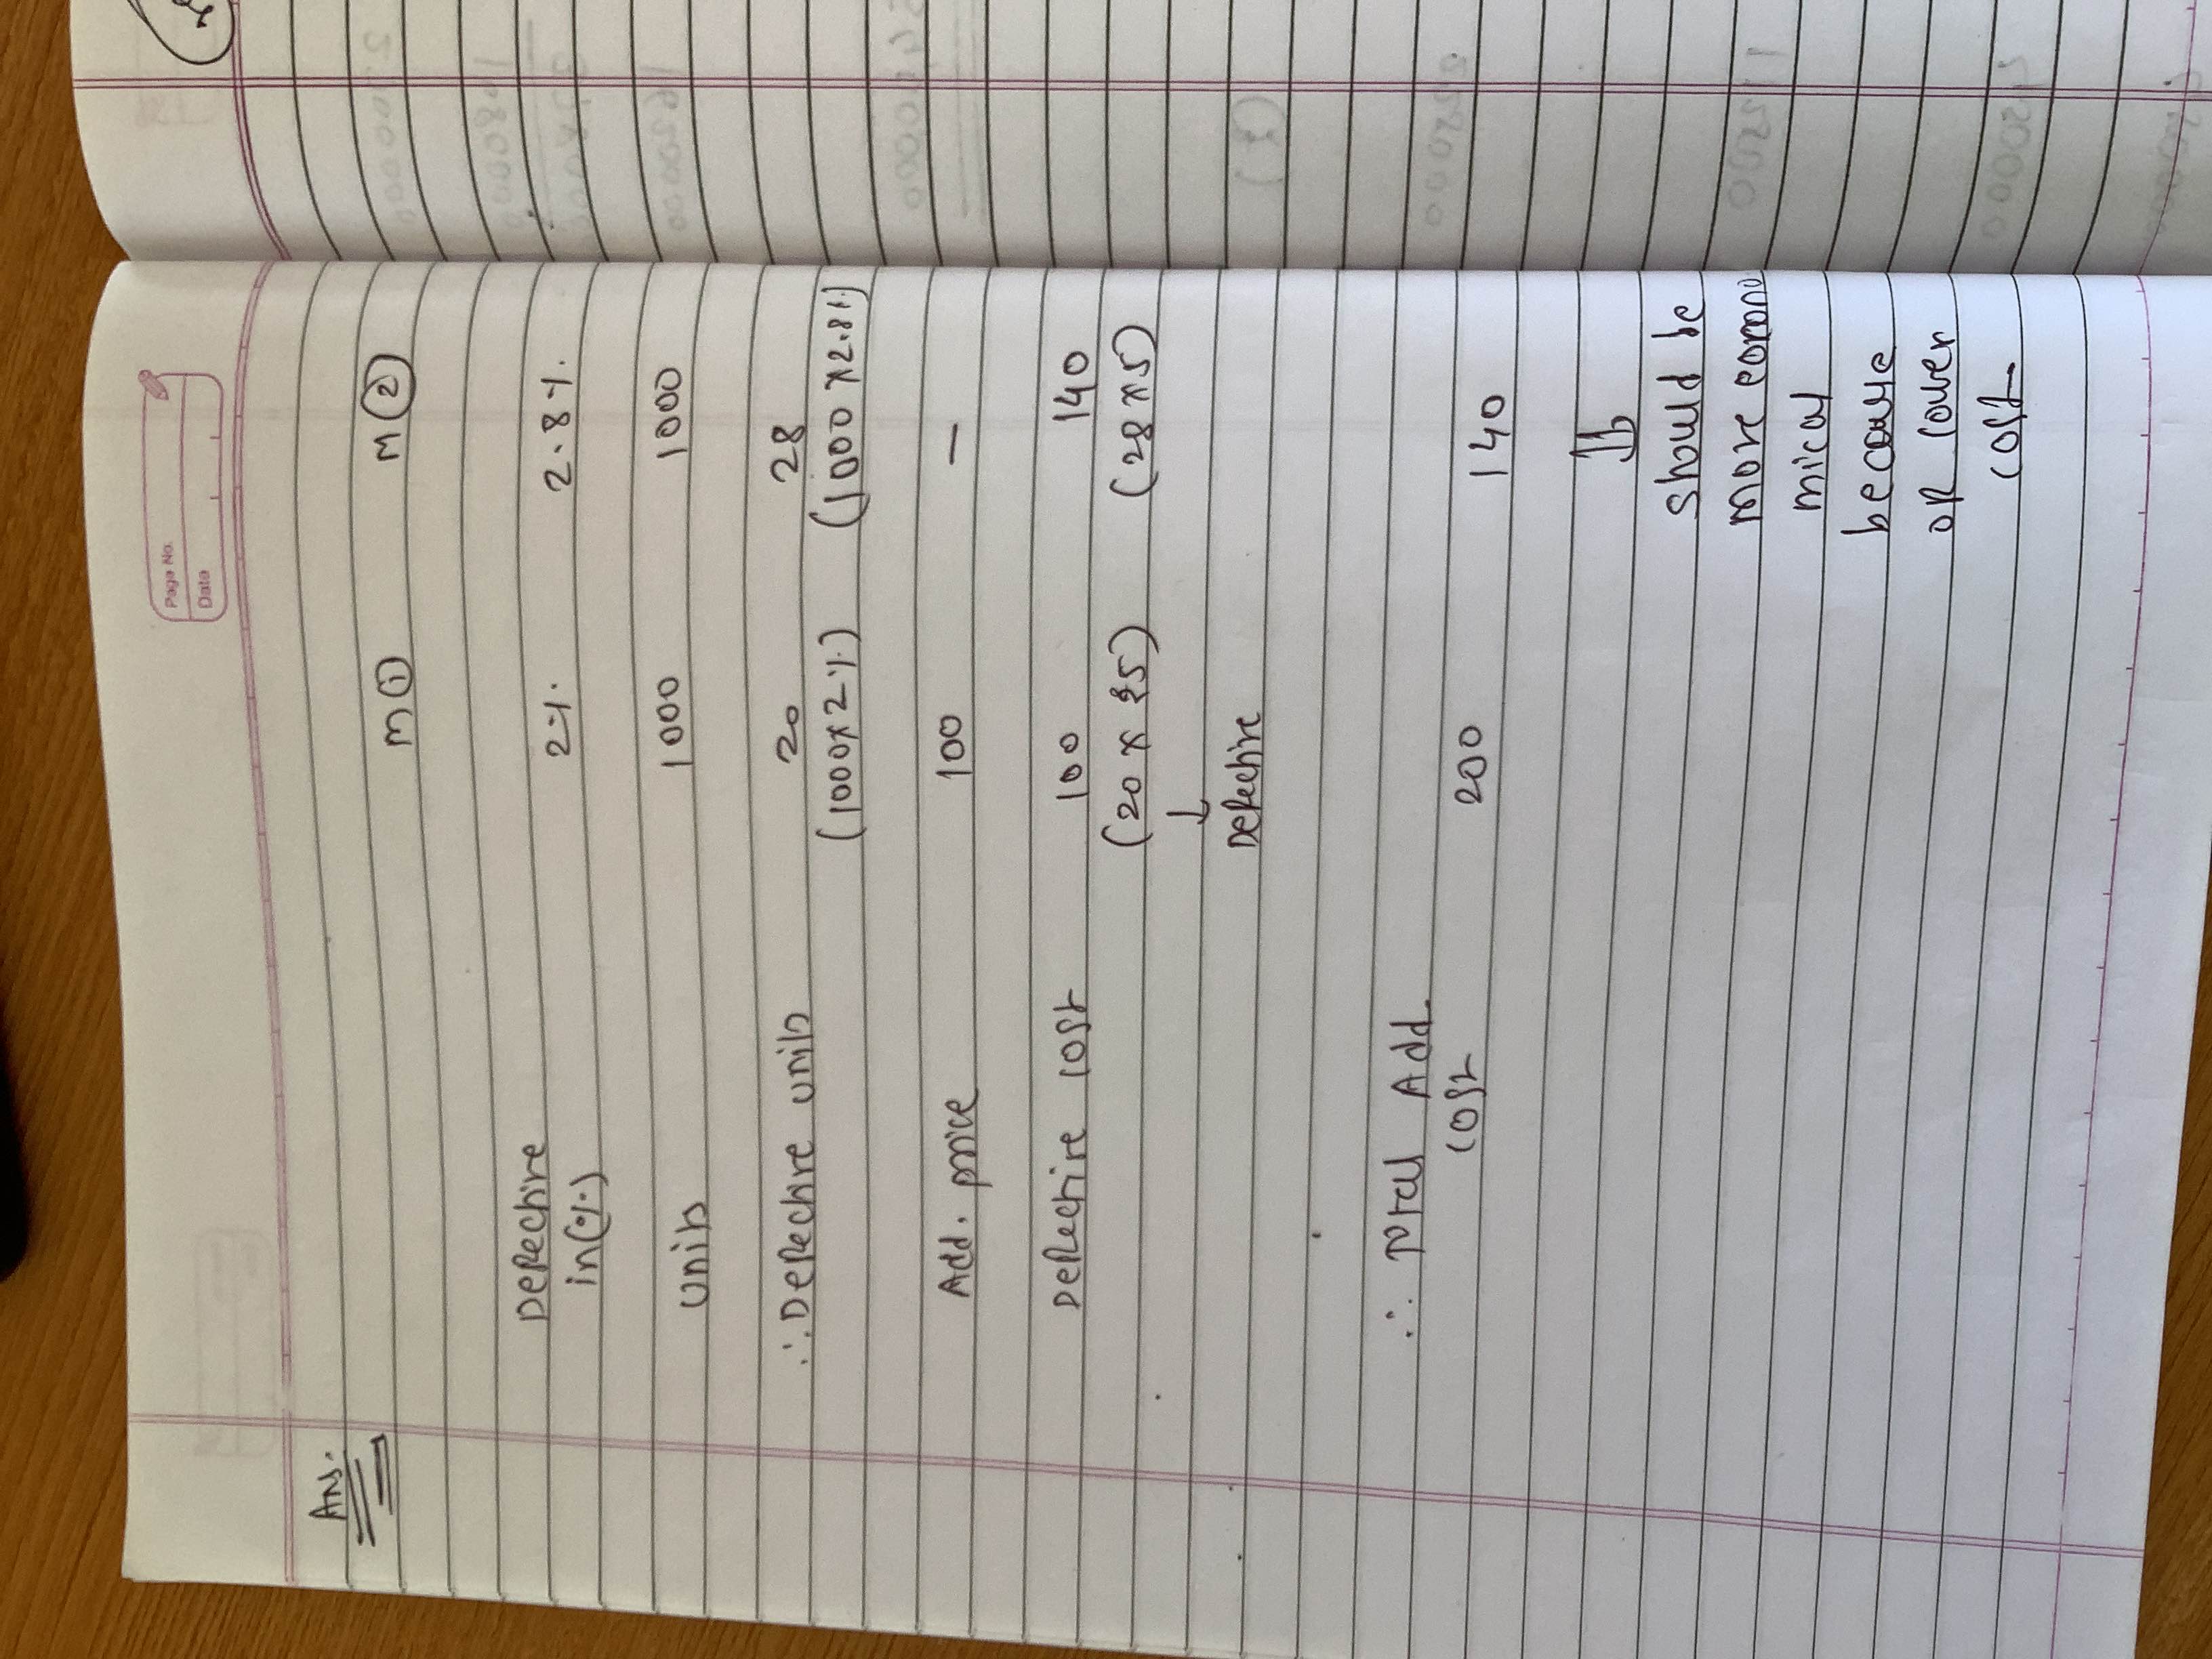 Page No.
Date
Ans.
M① M②
Defective 2% 2.8%
in (%)
Units 1000 1000
∴ Defective units 20 28
(1000 x 2%) (1000 x 2.8%)
Add. price 100 —
Defective cost 100 140
(20 x 5) (28 x 5)
↓
Defective
∴ Total Add. 200 140
cost
⇓
should be
more econo
mical
because
of lower
cost